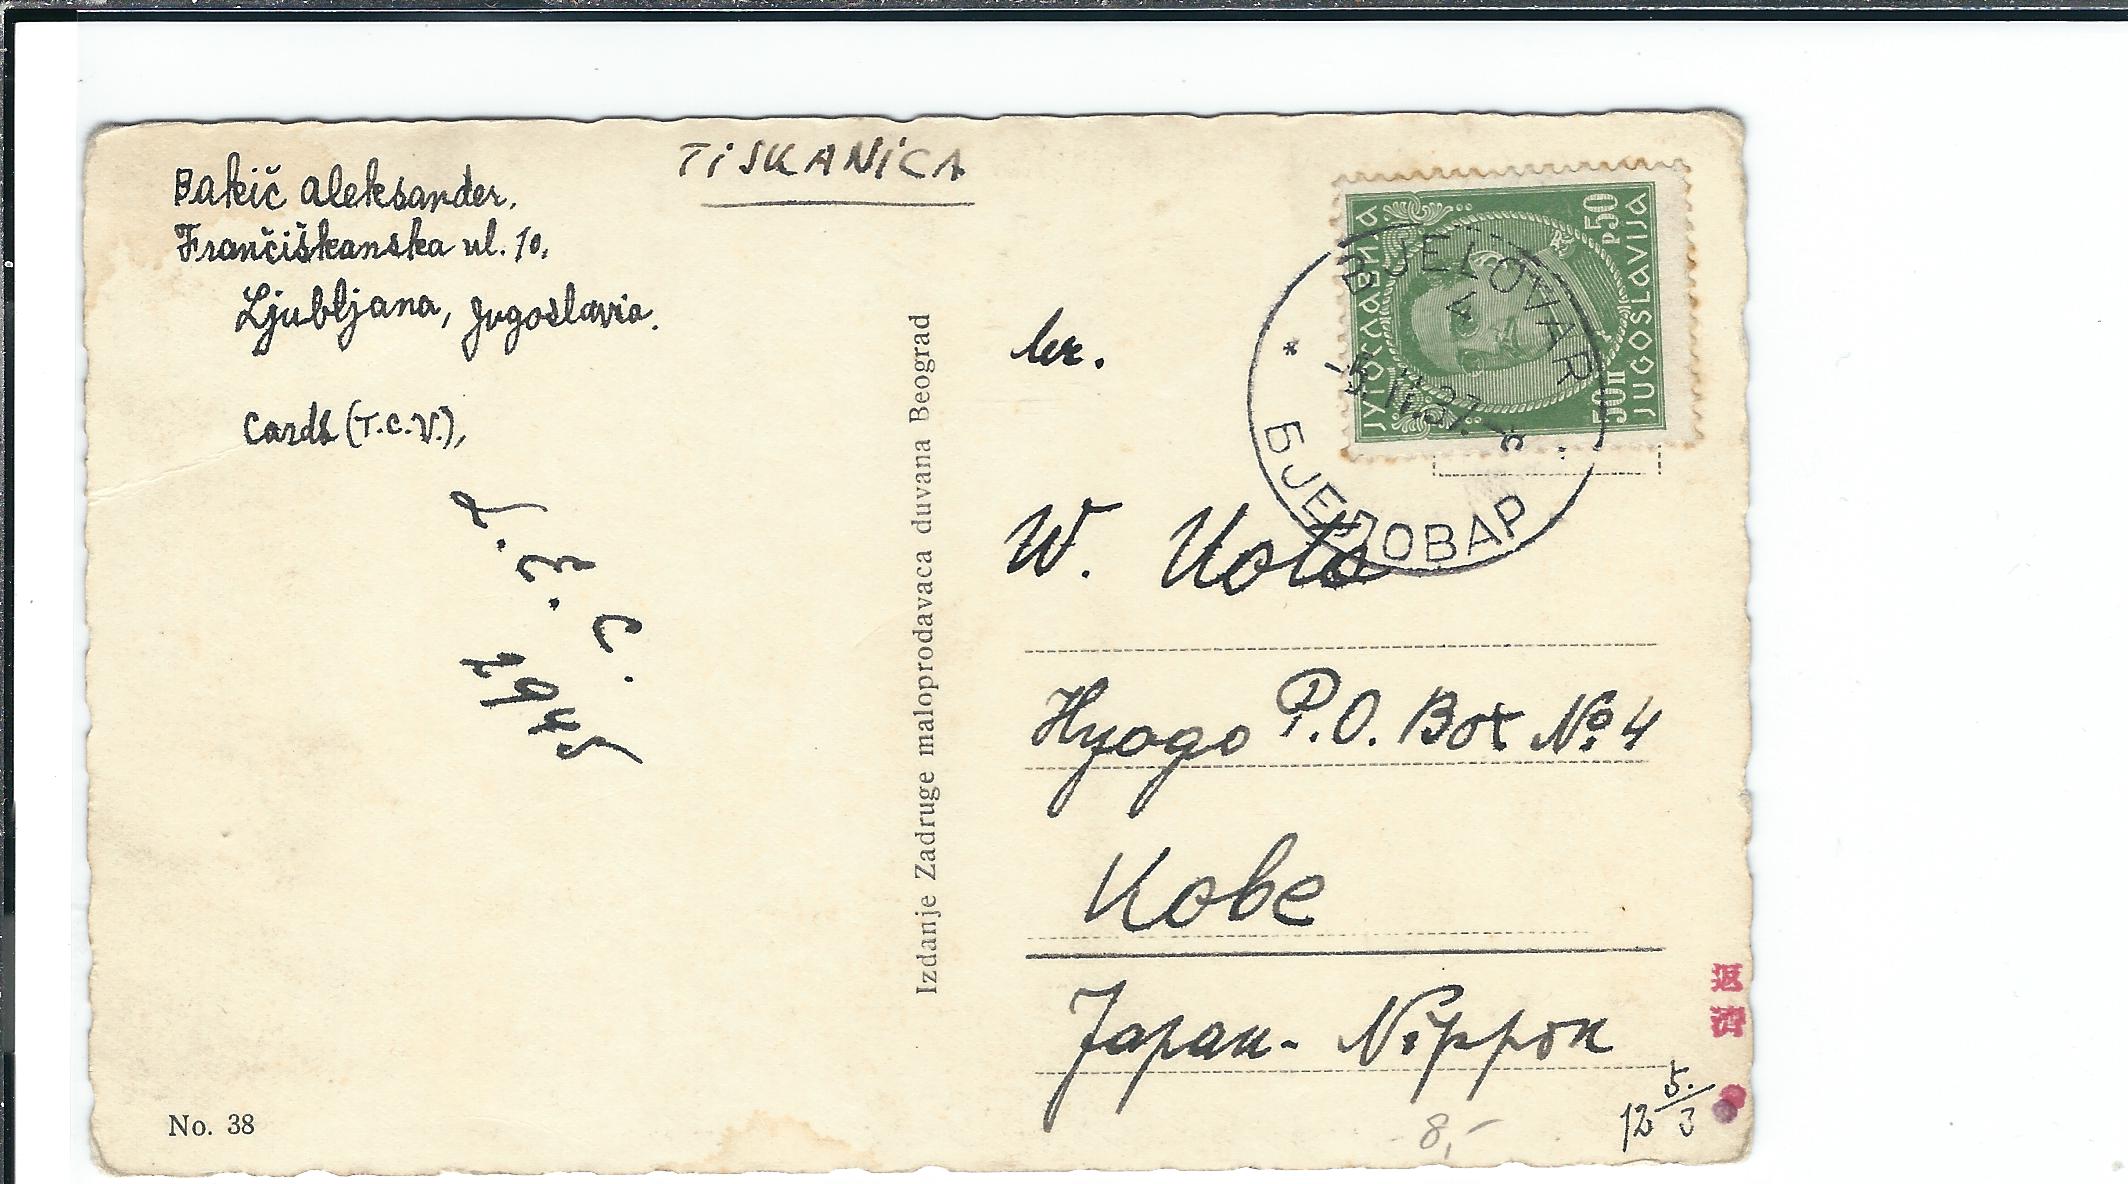 TISKANICA
Bakič Aleksander,
Frančiškanska ul. 10,
Ljubljana, Jugoslavia.
Cards (T.C.V.),
J. E. C.
7942
Izdanje Zadruge maloprodavaca duvana Beograd
No. 38
ЈУГОСЛАВИЈА
50 P
50 П
JUGOSLAVIJA
BJELOVAR
4
37
БЈЕЛОВАР
W. Kota
Hyogo P.O. Box No 4
Kobe
Japan - Nippon
返済
12 5/3
8,-